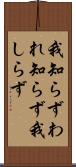 我知らずわ
れ知らず我
しらず